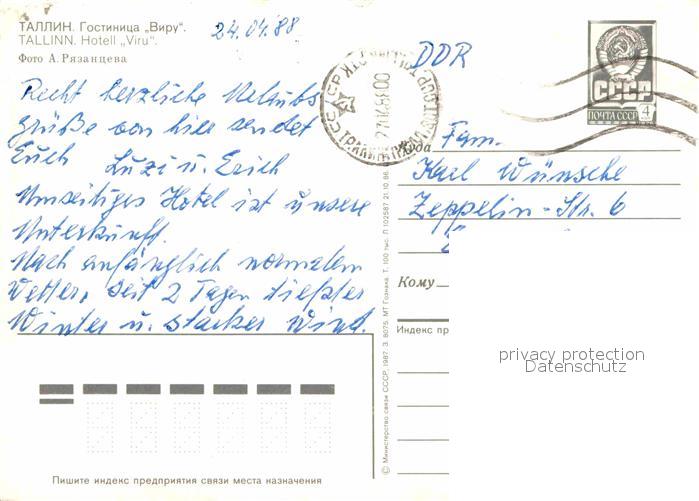 ТАЛЛИН. Гостиница „Виру“.
TALLINN. Hotell „Viru“.
Фото А. Рязанцева
24.04.88
Recht herzliche Urlaubs
grüße von hier sendet
Euch Luzi u. Erich
Umseitiges Hotel ist unsere
Unterkunft.
Nach anfänglich normalem
Wetter, seit 2 Tagen tiefster
Winter u. starker Wind.
DDR
ПОЧТА СССР 4
СССР
Куда
Fam.
Karl Wünsche
Zeppelin-Str. 6
Кому
Индекс пр
privacy protection
Datenschutz
© Министерство связи СССР, 1987. З. 8075. МТ Гознака. Т. 100 тыс. П 102587 21.10.86.
Пишите индекс предприятия связи места назначения